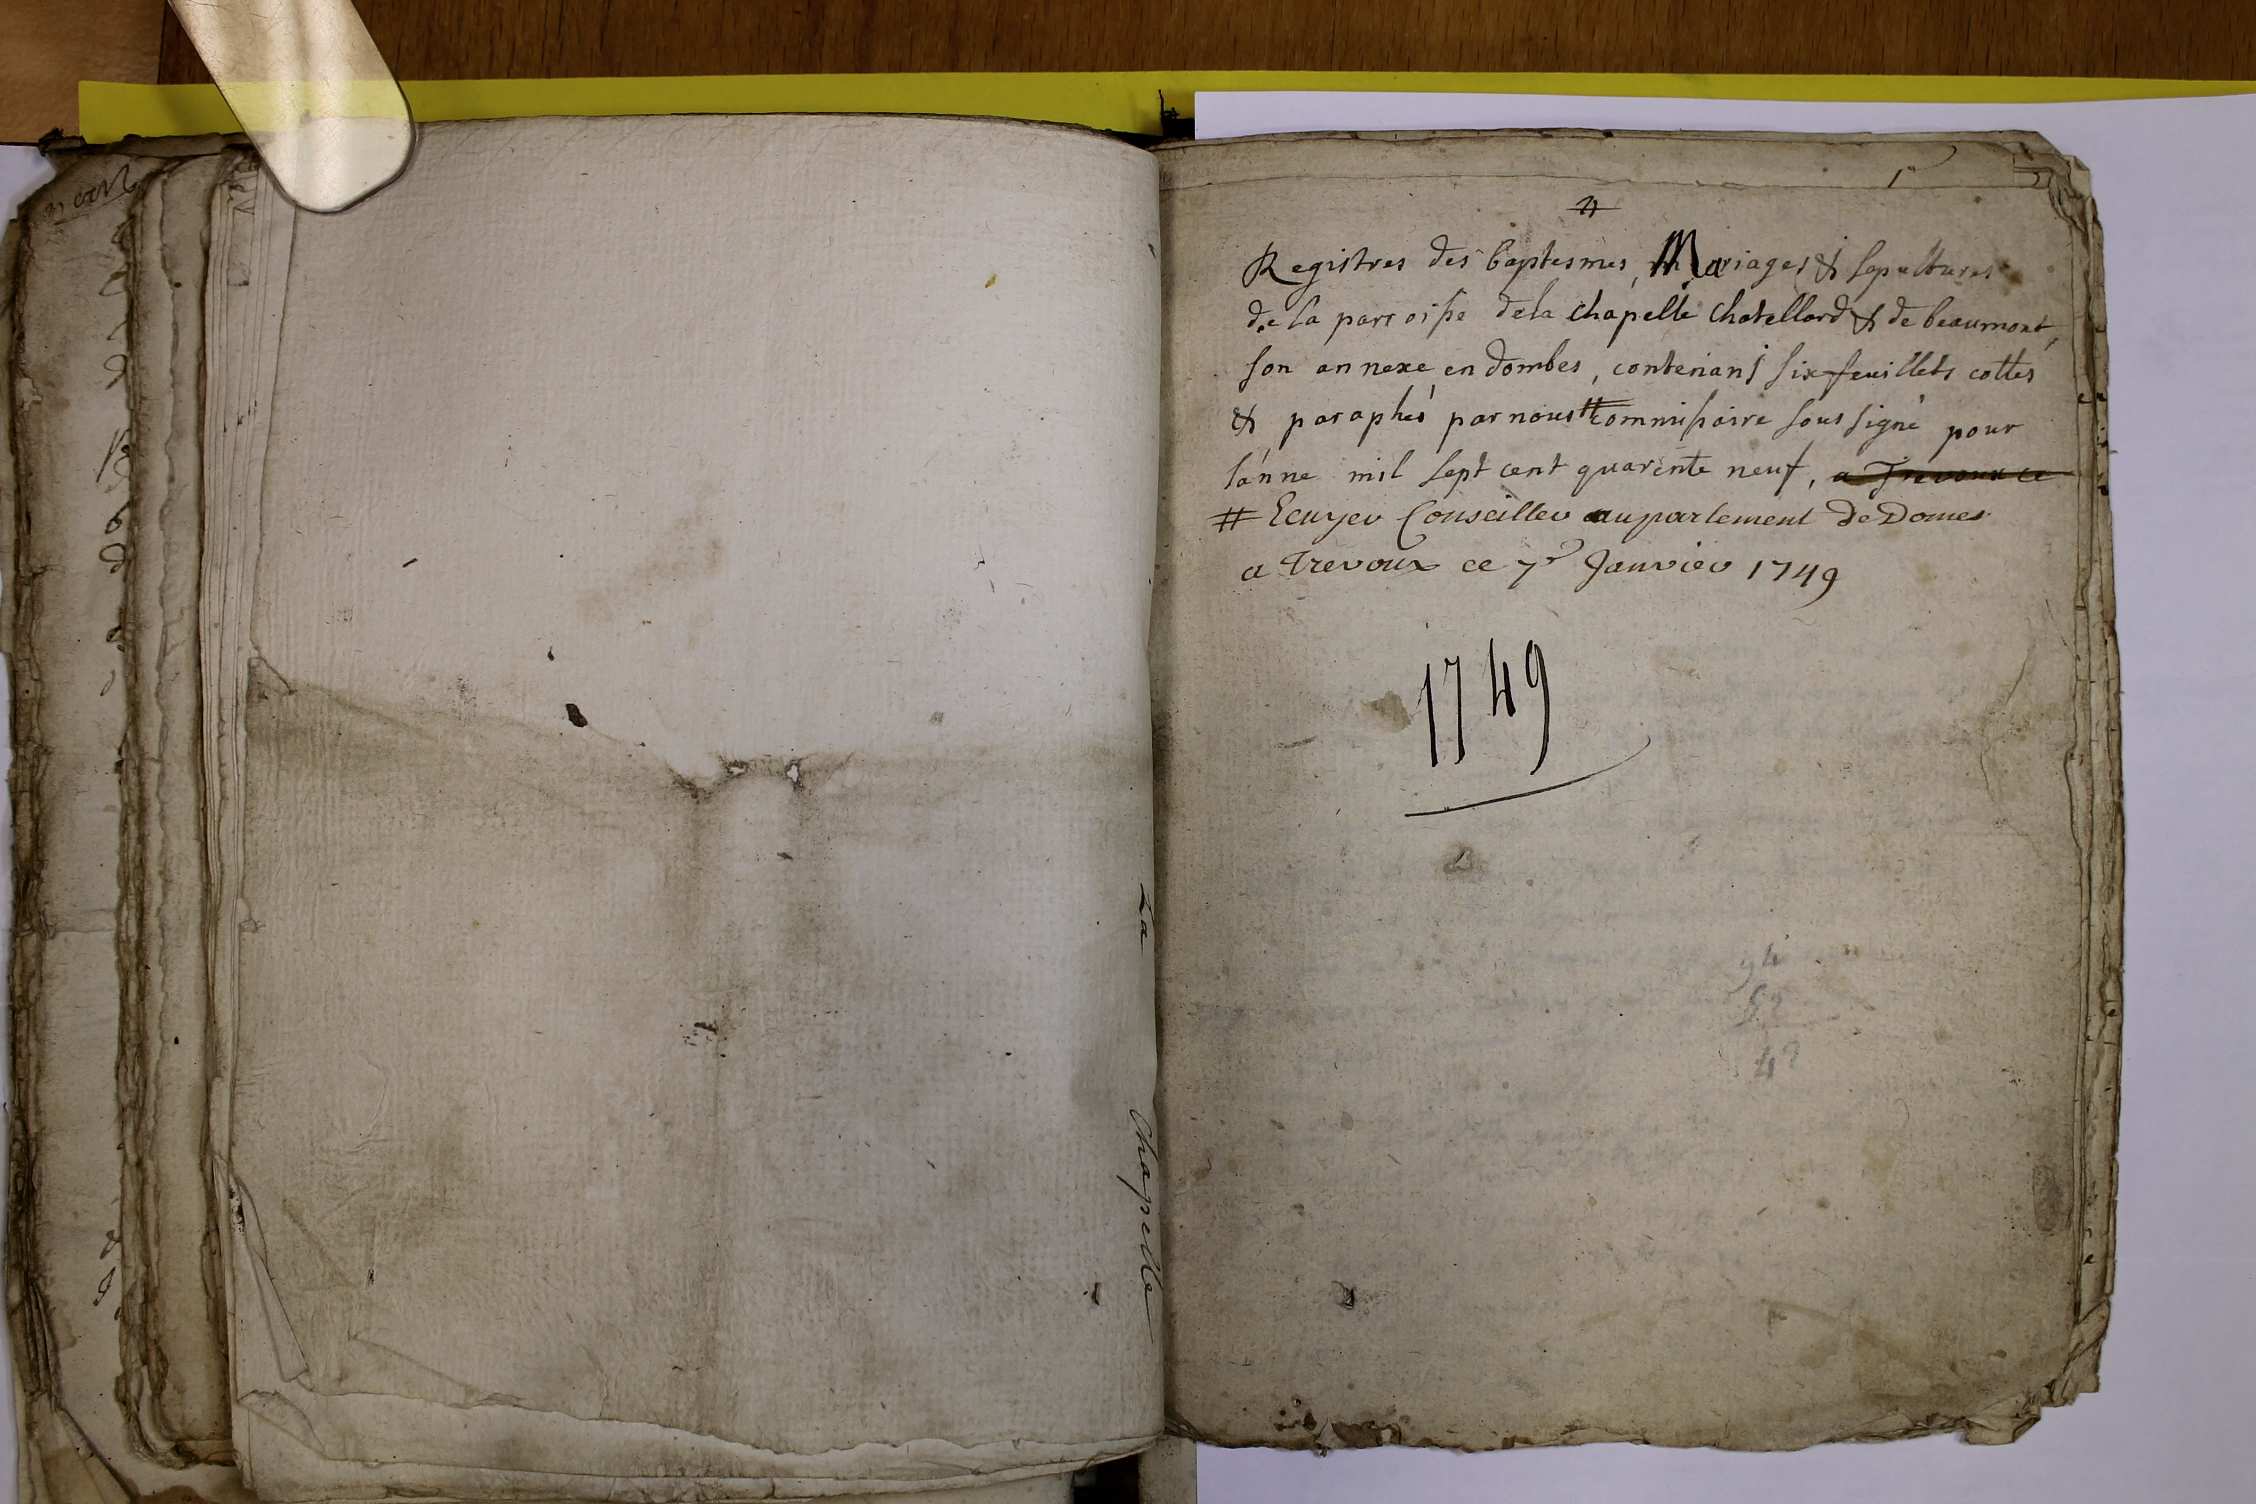 La Chapelle
1r
Registres des baptesmes, Mariages & sepultures
de la parroisse dela Chapelle Chatellard & de beaumont,
son annexe en dombes, contenant six feuillets cottes
& paraphés par nous # commissaire soussigné pour
lánne mil sept cent quarente neuf, a Trevoux ce
# Ecuyer Conseiller au parlement de Dombes
a Trevoux ce 7e Janvier 1749
1749
94
52
42